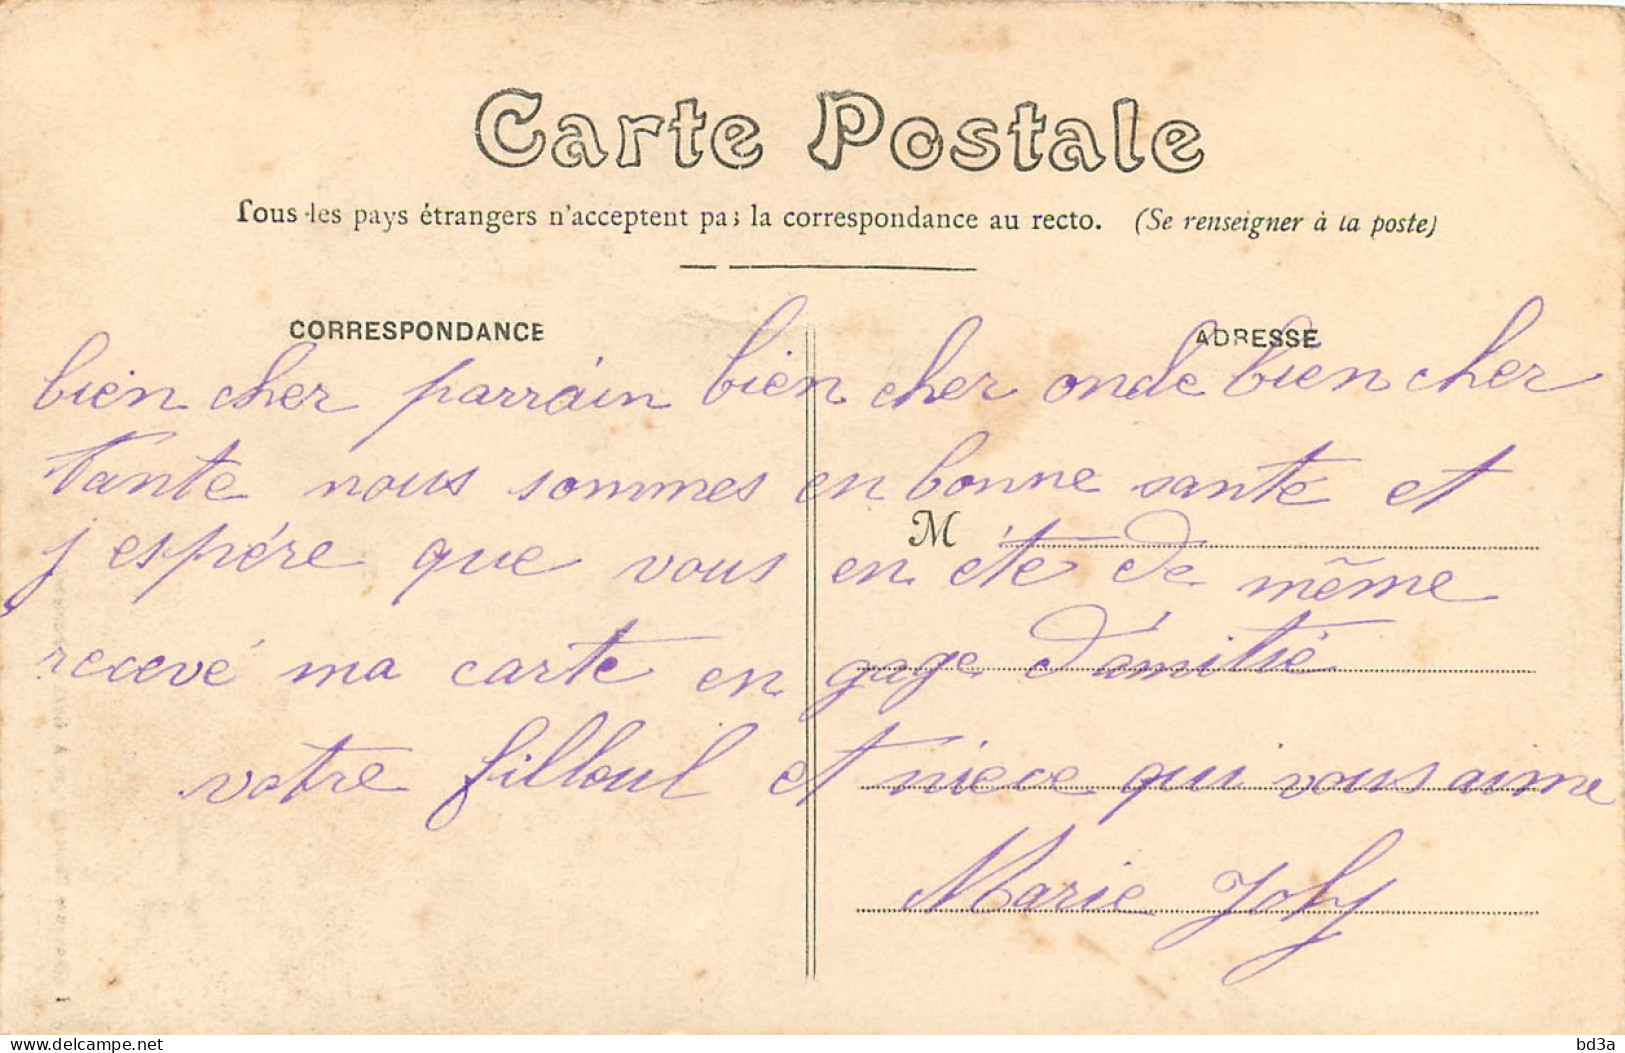 Carte Postale
Tous les pays étrangers n'acceptent pas la correspondance au recto. (Se renseigner à la poste)
CORRESPONDANCE
ADRESSE
bien cher parrain bien cher oncle bien cher
Tante nous sommes en bonne santé et
j espére que vous en éte de même
M
recevé ma carte en gage d'amitié
votre filleul et niece qui vous aime
Marie Joly
delcampe.net
bd3a